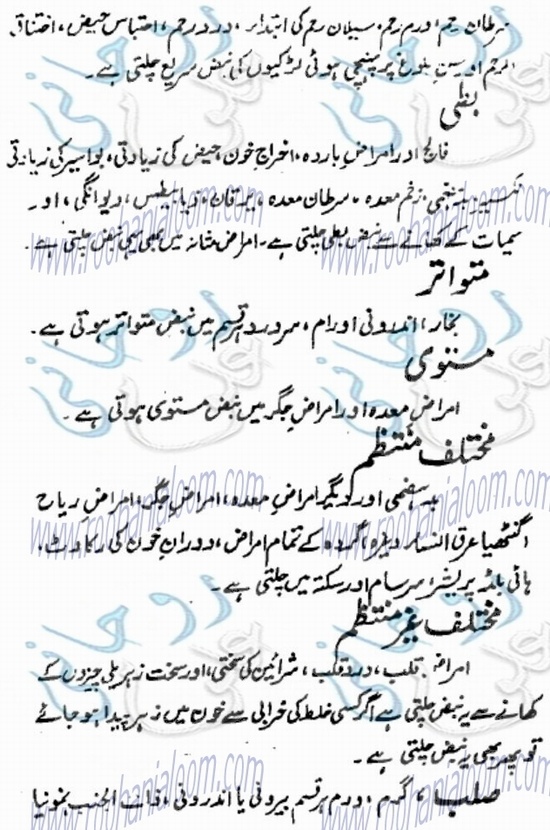 سرطان رحم، ورم رحم، سیلان رحم کی ابتداء، درد رحم، احتباس حیض، اختناق
الرحم اور سن بلوغ پر پہنچی ہوئی لڑکیوں کی نبض سریع چلتی ہے۔
بطی
فالج اور امراض باردہ، اخراج خون، حیض کی زیادتی، بواسیر کی زیادتی
نکسیر، بلغمی، زخم معدہ، سرطان معدہ، یرقان، ذیابیطس، دیوانگی، اور
سمیات کے کھانے سے نبض بطی چلتی ہے۔ امراض مثانہ میں بھی یہی نبض چلتی ہے۔
متواتر
بخار، اندرونی اورام، سر درد ہر قسم میں نبض متواتر ہوتی ہے۔
مستوی
امراض معدہ اور امراض جگر میں نبض مستوی ہوتی ہے۔
مختلف منتظم
بد ہضمی اور دیگر امراض معدہ، امراض جگر، امراض ریاح
گنٹھیا عرق النساء وغیرہ، گردہ کے تمام امراض، دوران خون کی رکاوٹ،
ہائی بلڈ پریشر، سرسام اور سکتہ میں چلتی ہے۔
مختلف غیر منتظم
امراض قلب، درد قلب، شرائین کی سختی، اور سخت زہریلی چیزوں کے
کھانے سے یہ نبض چلتی ہے اگر کسی خلط کی خرابی سے خون میں زہر پیدا ہو جائے
تو پھر بھی یہ نبض چلتی ہے۔
صلب، گرم، ورم ہر قسم بیرونی یا اندرونی، ذات الجنب نمونیا
www.roohanialoom.com
www.roohanialoom.com
www.roohanialoom.com
www.roohanialoom.com
www.roohanialoom.com
www.roohanialoom.com